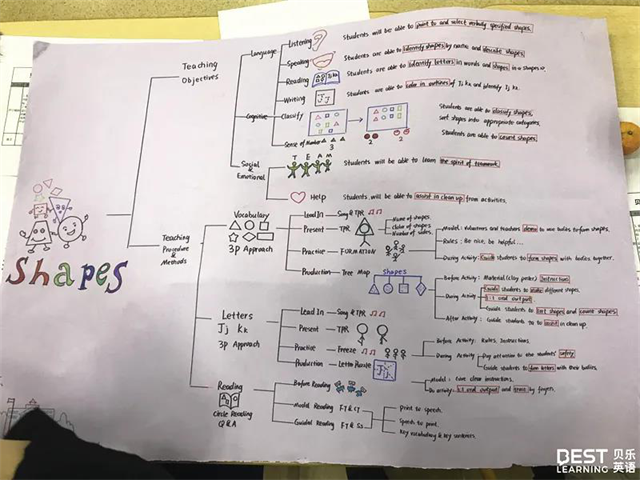 Shapes
Teaching
Objectives
Language
Listening
Students will be able to point to and select verbally specified shapes.
Speaking
Students are able to identify shapes by name and describe shapes.
Reading
Students are able to identify letters in words and shapes in
Writing
Jj
Students are able to color in outlines of Jj Kk and identify Jj Kk.
Cognitive
Classify
Students are able to classify shapes,
sort shapes into appropriate categories.
Sense of Number
3
2
2
Students are able to count shapes.
Social
&
Emotional
TEAM
Students will be able to learn the spirit of teamwork.
Help
Students will be able to assist in clean up from activities.
Teaching
Procedure
&
Methods
Vocabulary
3P Approach
Lead In
Song & TPR
Present
TPR
Name of shapes.
Color of shapes.
Number of sides.
Model: Volunteers and teachers demo to use bodies to form shapes.
Rules: Be nice, be helpful...
Practise
FORMATION
During Activity: Guide students to form shapes with bodies together.
Production
Tree Map
Shapes
Before Activity: Material (clay poster) Instructions
During Activity
Guide students to make different shapes.
1:1 and output
Guide students to sort shapes and count shapes.
After Activity: Guide students to assist in clean up
Letters
Jj Kk
3P Approach
Lead In
Song & TPR
Present
TPR
Practice
Freeze
Before Activity: Rules, Instructions.
During Activity
Pay attention to the students' safety
Guide students to form letters with their bodies.
Production
Letter
Jj
Model: Give clear instructions.
In activity: 1:1 and output and trace by fingers.
Reading
Circle Reading
Q&A
Before Reading
Model Reading
F.T & C.T
Guided Reading
F.T & Ss
Point to speech.
Speech to point.
Key vocabulary & key sentences.
BEST
LEARNING
贝乐
英语